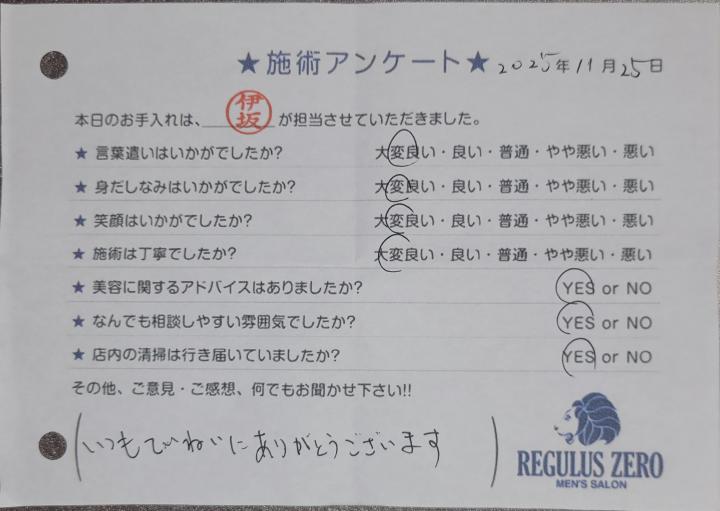 ★施術アンケート★ 2025年11月25日
本日のお手入れは、伊坂が担当させていただきました。
★ 言葉遣いはいかがでしたか? 大変良い・良い・普通・やや悪い・悪い
★ 身だしなみはいかがでしたか? 大変良い・良い・普通・やや悪い・悪い
★ 笑顔はいかがでしたか? 大変良い・良い・普通・やや悪い・悪い
★ 施術は丁寧でしたか? 大変良い・良い・普通・やや悪い・悪い
★ 美容に関するアドバイスはありましたか? YES or NO
★ なんでも相談しやすい雰囲気でしたか? YES or NO
★ 店内の清掃は行き届いていましたか? YES or NO
その他、ご意見・ご感想、何でもお聞かせ下さい!!
(いつもていねいにありがとうございます)
REGULUS ZERO
MEN'S SALON